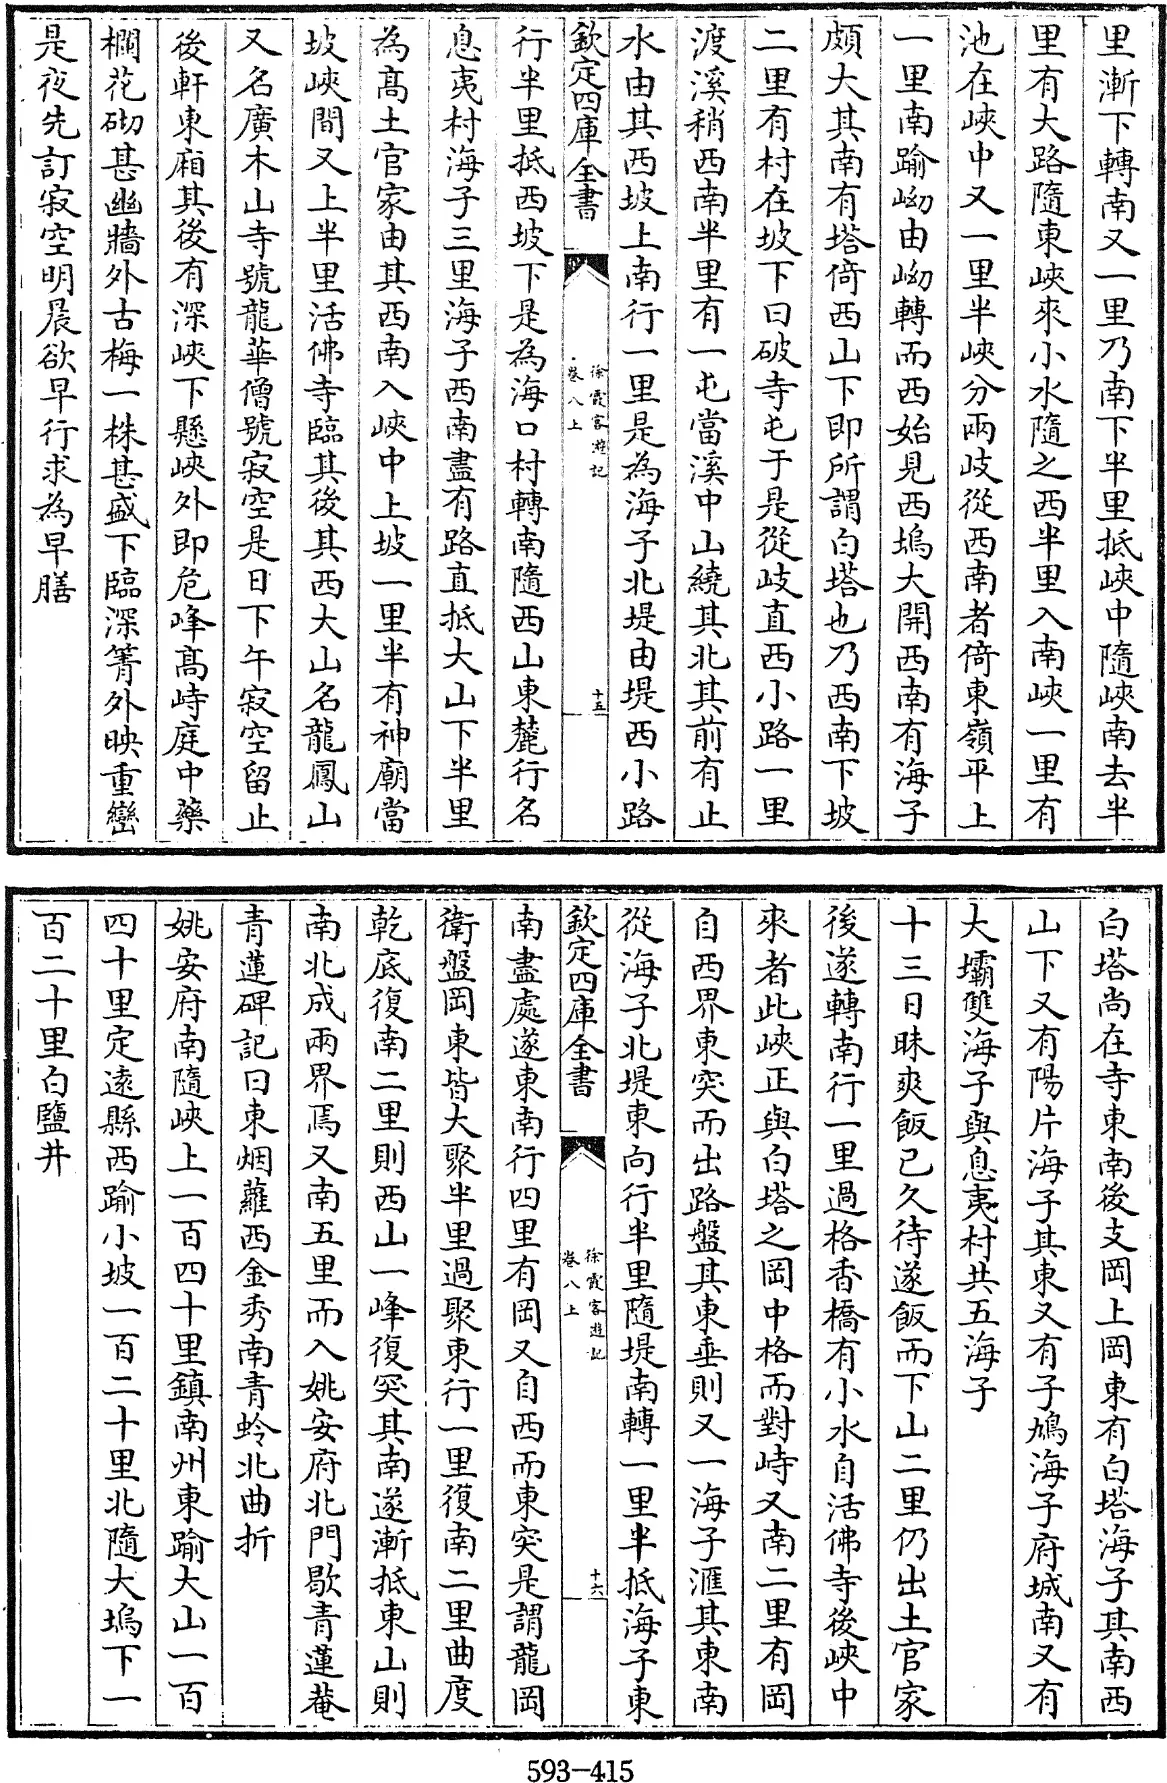 里漸下轉南又一里乃南下半里抵峽中隨峽南去半
里有大路隨東峽來小水隨之西半里入南峽一里有
池在峽中又一里半峽分兩岐從西南者倚東嶺平上
一里南踰坳由坳轉而西始見西塢大開西南有海子
頗大其南有塔倚西山下即所謂白塔也乃西南下坡
二里有村在坡下曰破寺屯于是從岐直西小路一里
渡溪稍西南半里有一屯當溪中山繞其北其前有止
水由其西坡上南行一里是為海子北堤由堤西小路
欽定四庫全書
徐霞客遊記
卷八上
十五
行半里抵西坡下是為海口村轉南隨西山東麓行名
息夷村海子三里海子西南盡有路直抵大山下半里
為髙土官家由其西南入峽中上坡一里半有神廟當
坡峽間又上半里活佛寺臨其後其西大山名龍鳳山
又名廣木山寺號龍華僧號寂空是日下午寂空留止
後軒東廂其後有深峽下懸峽外即危峰髙峙庭中藥
欄花砌甚幽牆外古梅一株甚盛下臨深箐外映重巒
是夜先訂寂空明晨欲早行求為早膳
白塔尚在寺東南後支岡上岡東有白塔海子其南西
山下又有陽片海子其東又有子鳩海子府城南又有
大壩雙海子與息夷村共五海子
十三日昧爽飯已久待遂飯而下山二里仍出土官家
後遂轉南行一里過格香橋有小水自活佛寺後峽中
來者此峽正與白塔之岡中格而對峙又南二里有岡
自西界東突而出路盤其東垂則又一海子滙其東南
從海子北堤東向行半里隨堤南轉一里半抵海子東
欽定四庫全書
徐霞客遊記
卷八上
十六
南盡處遂東南行四里有岡又自西而東突是謂龍岡
衛盤岡東皆大聚半里過聚東行一里復南二里曲度
乾底復南二里則西山一峰復突其南遂漸抵東山則
南北成兩界焉又南五里而入姚安府北門歇青蓮菴
青蓮碑記曰東烟蘿西金秀南青蛉北曲折
姚安府南隨峽上一百四十里鎮南州東踰大山一百
四十里定逺縣西踰小坡一百二十里北隨大塢下一
百二十里白鹽井
593-415